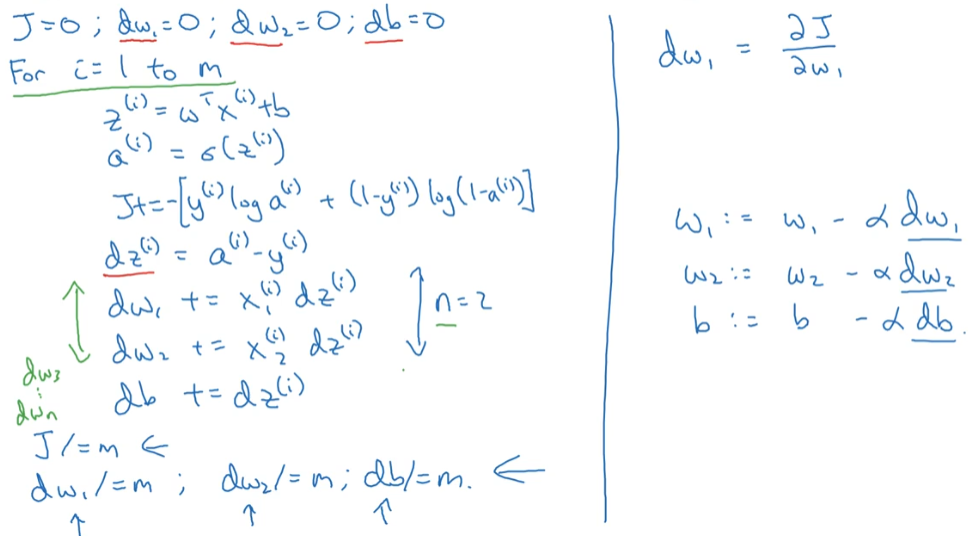 J=0 ; dw₁=0 ; dw₂=0 ; db=0
For i = 1 to m
z⁽ⁱ⁾ = ωᵀx⁽ⁱ⁾+b
a⁽ⁱ⁾ = σ(z⁽ⁱ⁾)
J+=-[y⁽ⁱ⁾ log a⁽ⁱ⁾ + (1-y⁽ⁱ⁾) log(1-a⁽ⁱ⁾)]
dz⁽ⁱ⁾ = a⁽ⁱ⁾-y⁽ⁱ⁾
dw₁ += x₁⁽ⁱ⁾ dz⁽ⁱ⁾
dw₂ += x₂⁽ⁱ⁾ dz⁽ⁱ⁾
n=2
db += dz⁽ⁱ⁾
dw₃
⋮
dwₙ
J/=m ←
dw₁/=m ; dw₂/=m ; db/=m. ←
↑ ↑ ↑
dw₁ = ∂J/∂w₁
w₁ := w₁ - α dw₁
w₂ := w₂ - α dw₂
b := b - α db.